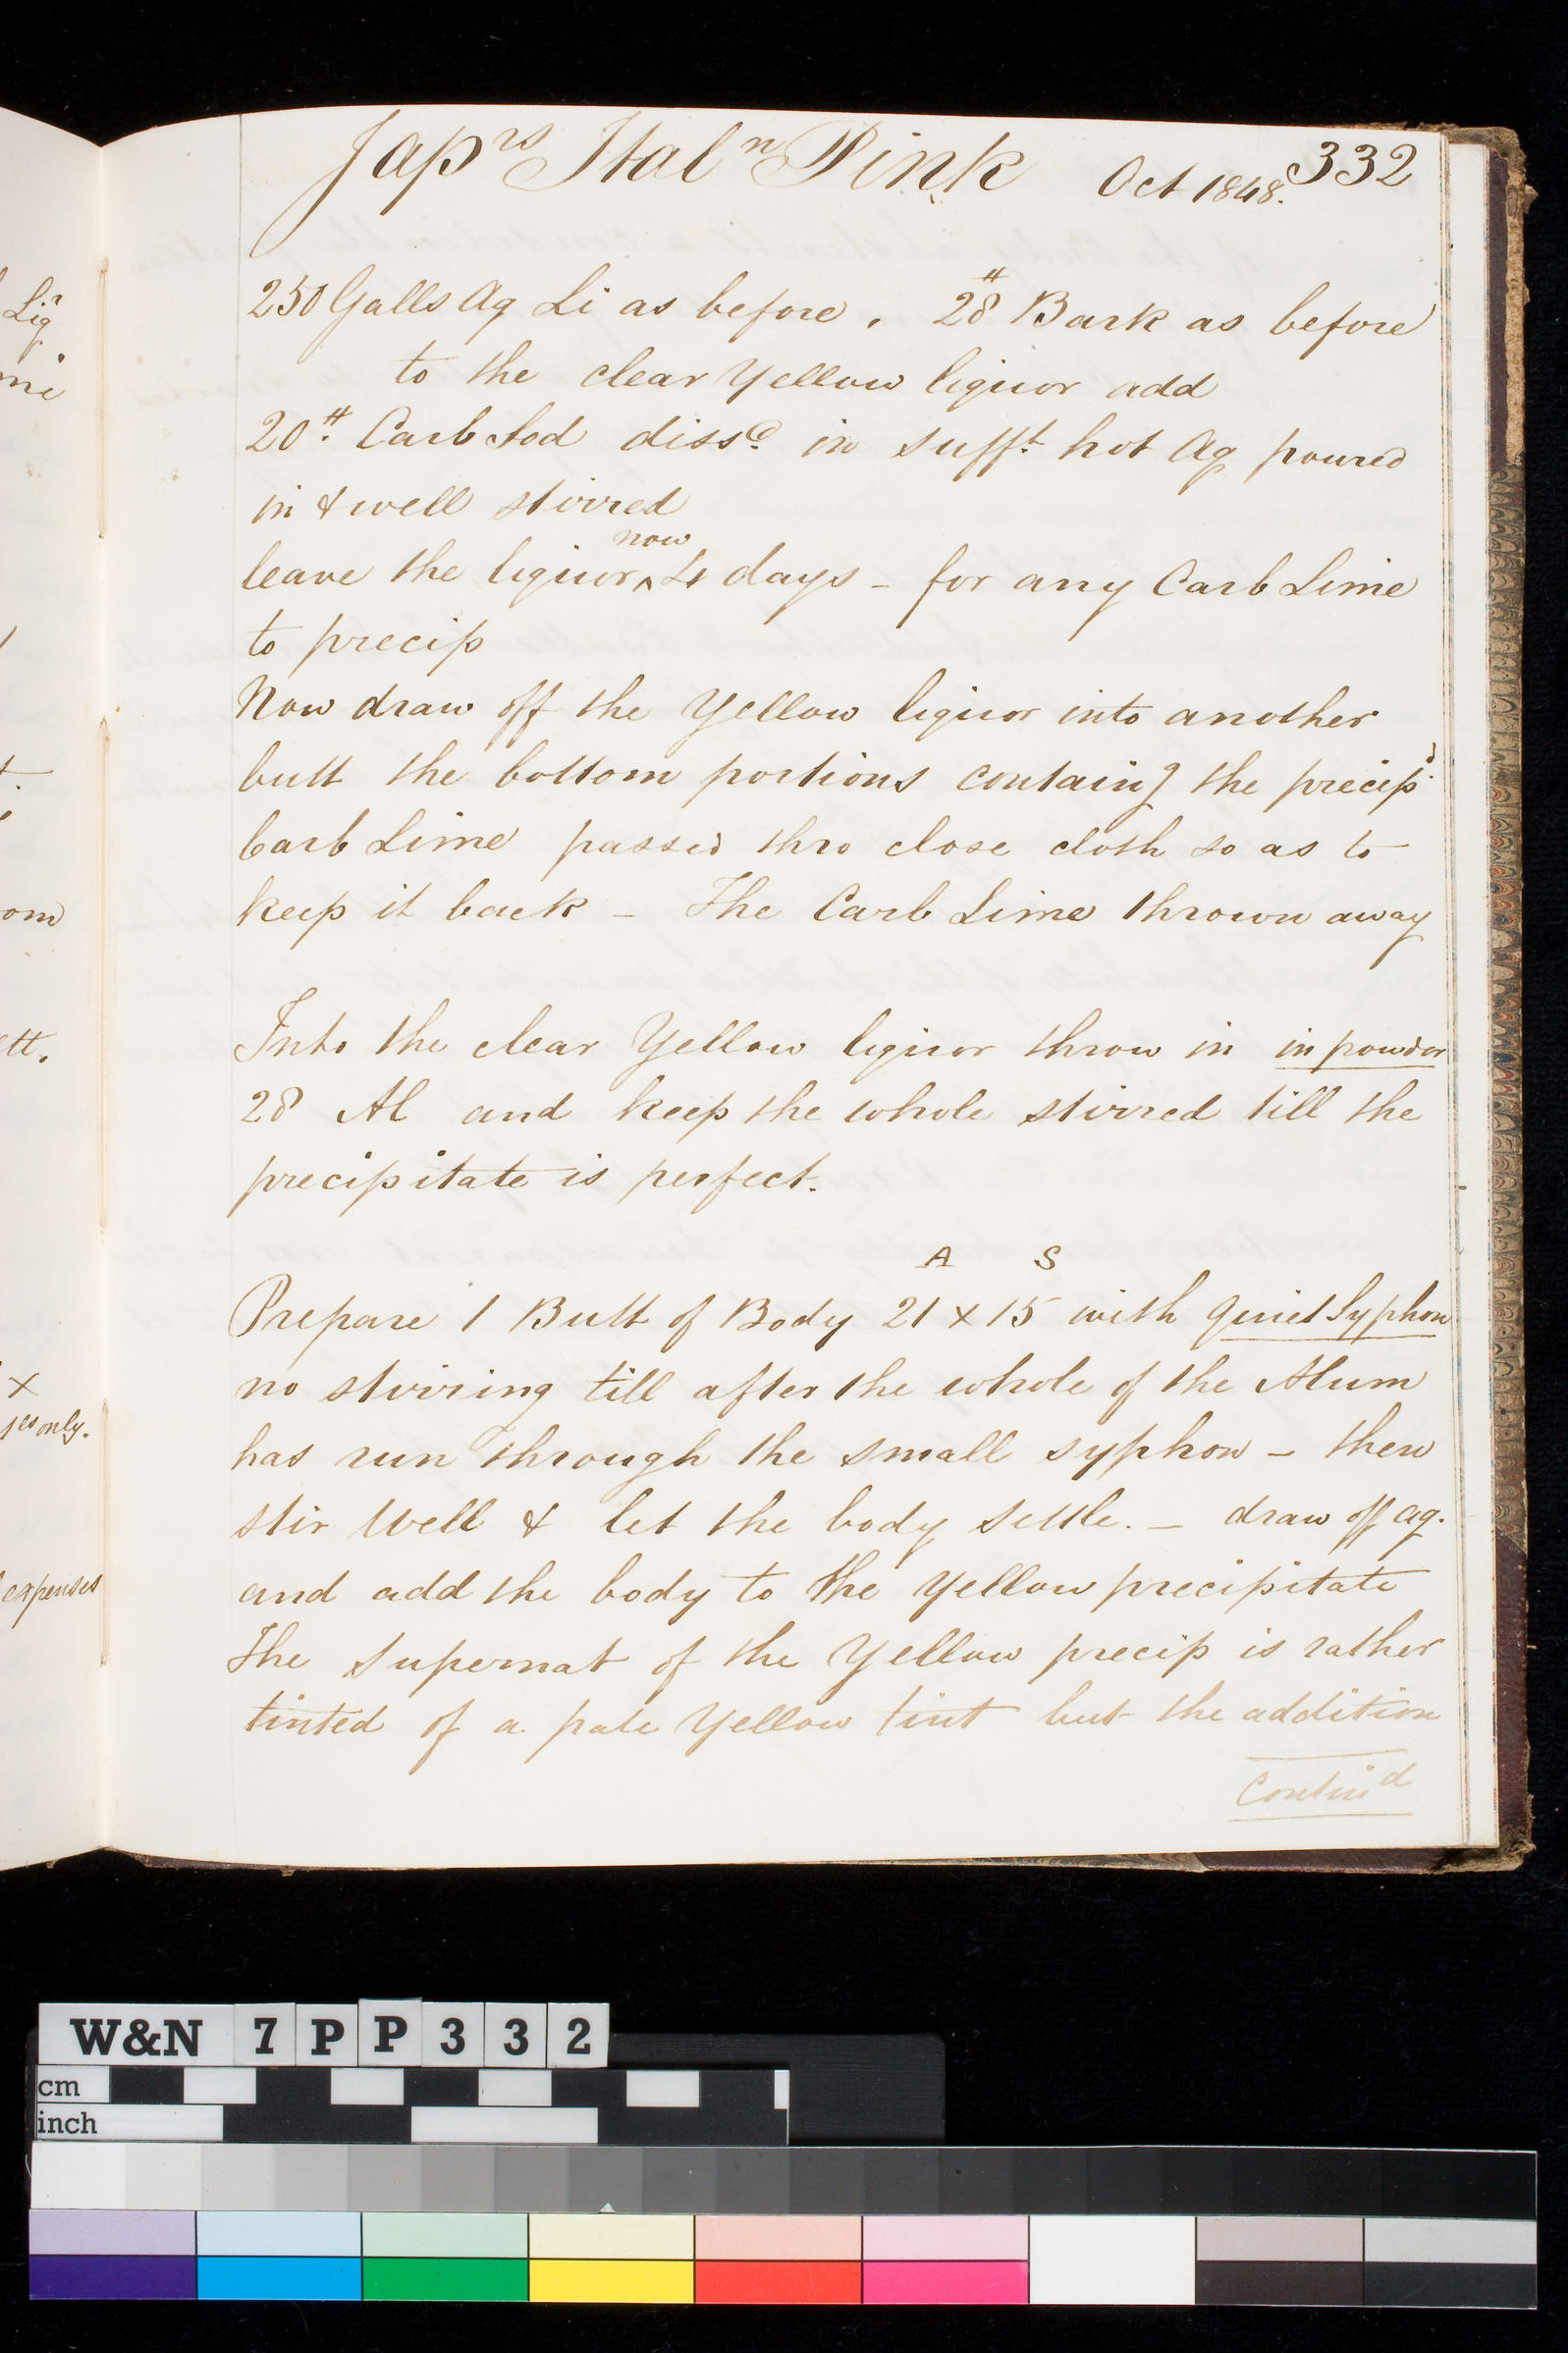 Liqr
om
tt.
x
1es only.
expenses
Japrs Italn Pink Oct 1848. 332
250 Galls Aq Li as before, 28# Bark as before
to the clear Yellow liquor add
20#. Carb Sod dissd. in sufft. hot Aq poured
in & well stirred
leave the liquor ^now 4 days - for any Carb Lime
to precip
Now draw off the Yellow liquor into another
butt the bottom portions containg the precipd.
Carb Lime passed thro close cloth so as to
keep it back - The Carb Lime thrown away
Into the clear Yellow liquor throw in in powder
28 Al and keep the whole stirred till the
precipitate is perfect.
A S
Prepare 1 Butt of Body 21 x 15 with quiet Syphon
no stirring till after the whole of the Alum
has run through the small syphon - then
stir well & let the body settle. - draw off aq.
and add the body to the yellow precipitate
The Supernat of the Yellow precip is rather
tinted of a pale Yellow tint but the addition
Contind
W&N 7 P P 3 3 2
cm
inch